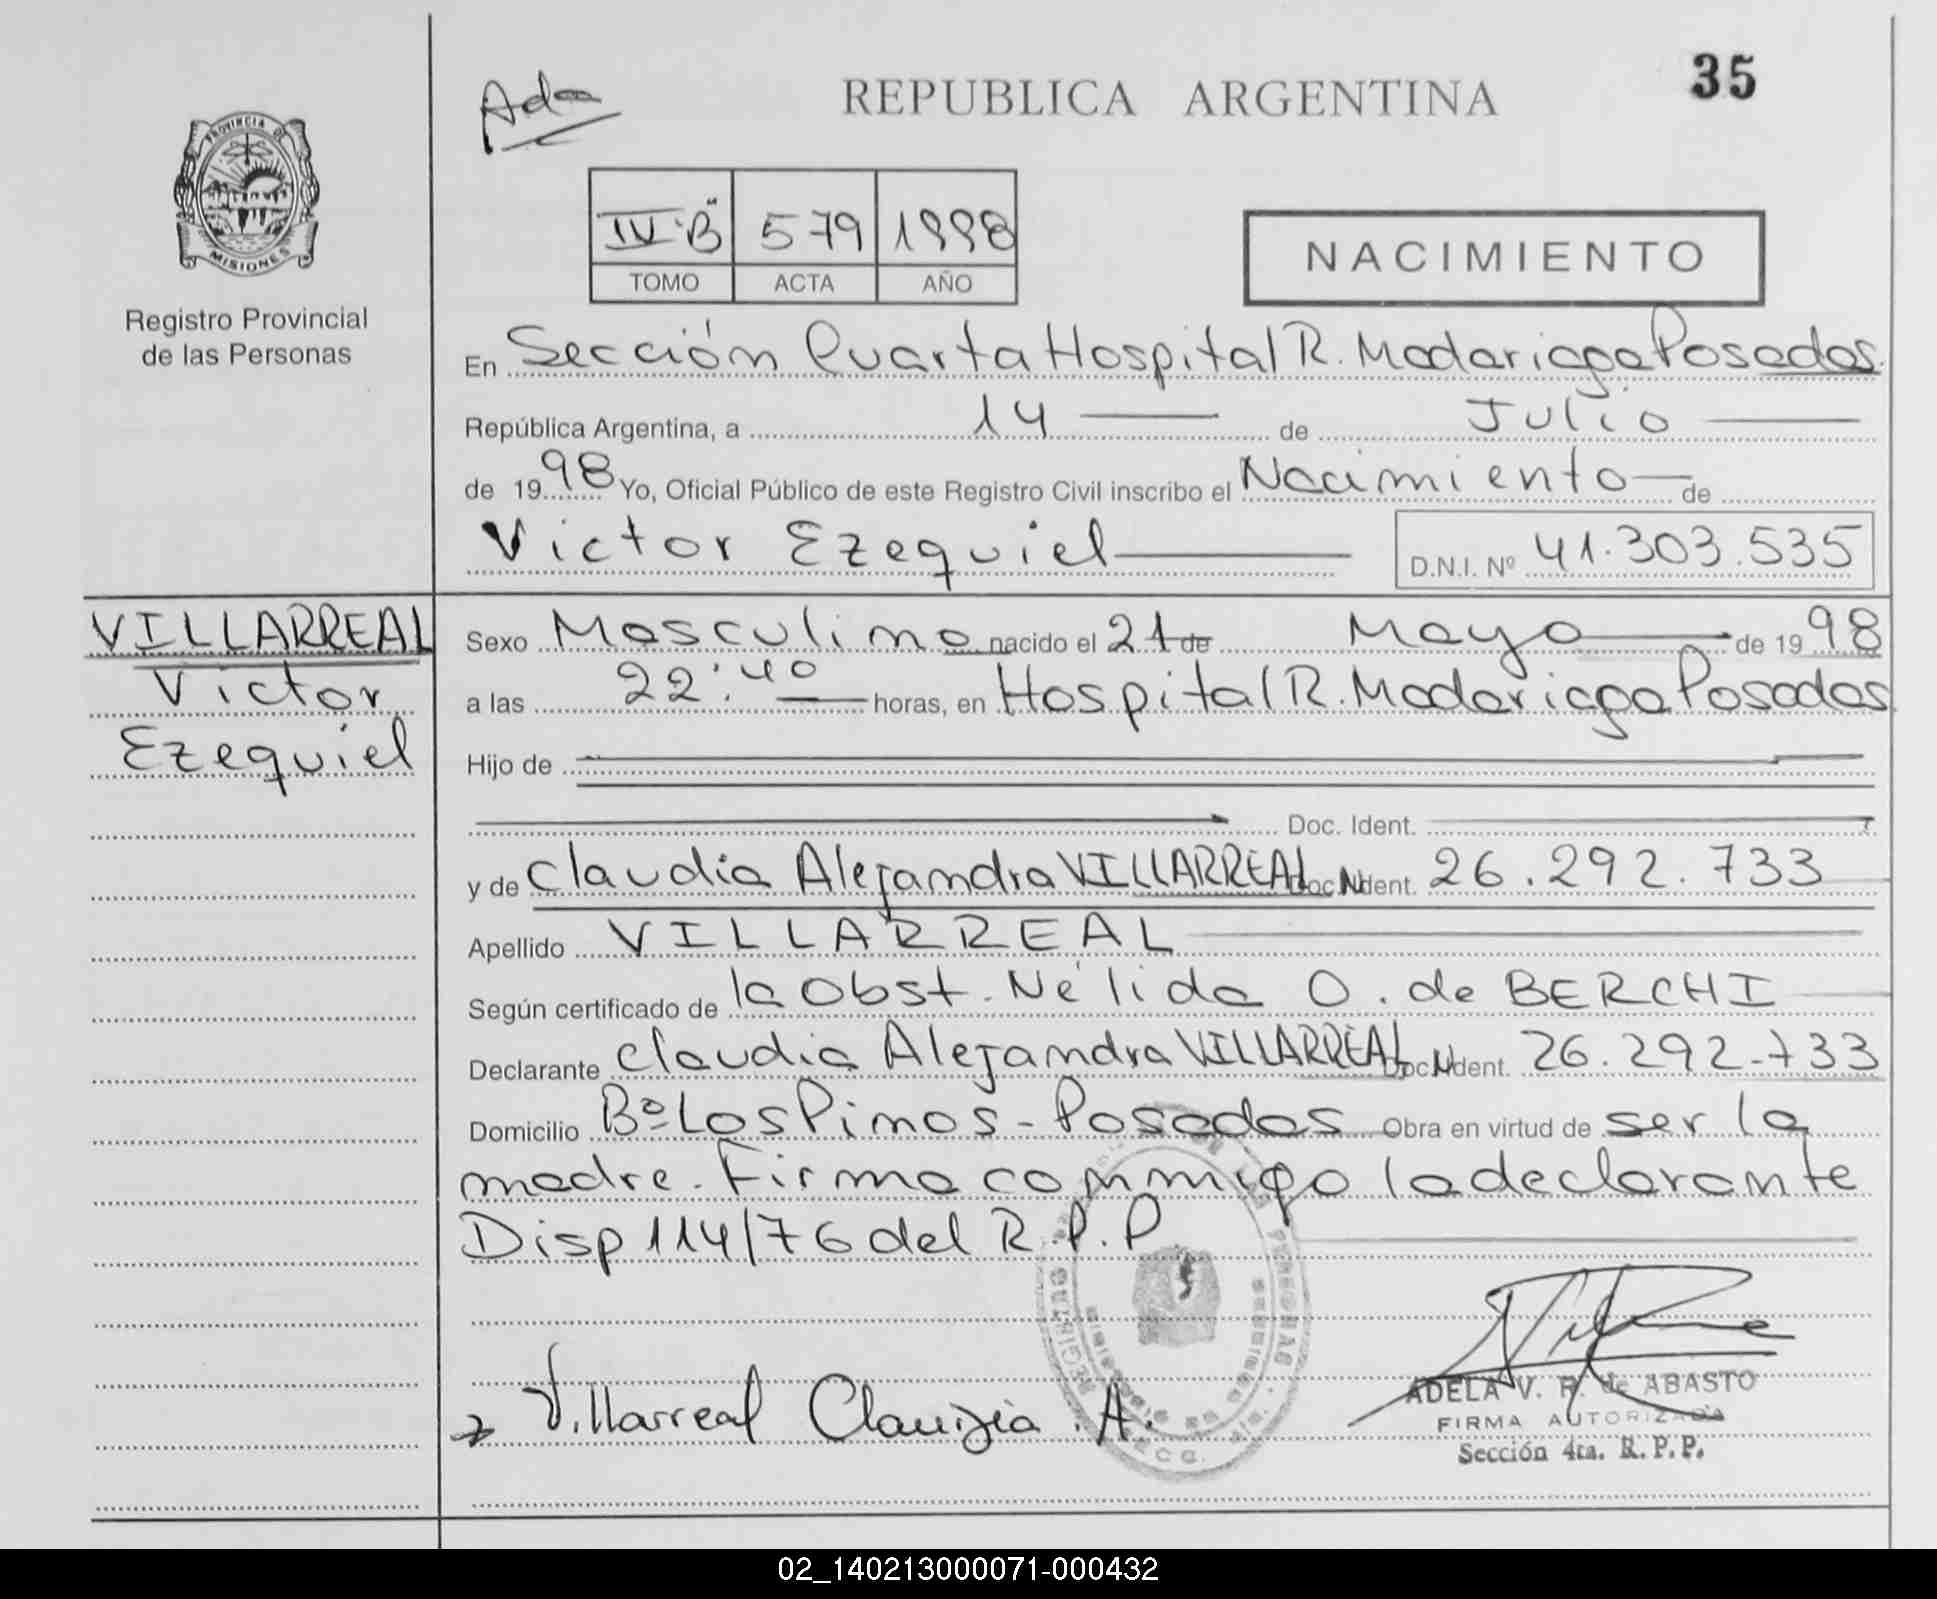 35
Ada
REPUBLICA ARGENTINA
PROVINCIA DE
MISIONES
Registro Provincial
de las Personas
IV "B" 579 1998
TOMO ACTA AÑO
NACIMIENTO
En Sección Cuarta Hospital R. Madariaga Posadas.
República Argentina, a 14 de Julio
de 1998 Yo, Oficial Público de este Registro Civil inscribo el Nacimiento de
Victor Ezequiel D.N.I. Nº 41.303.535
VILLARREAL
Victor
Ezequiel
Sexo Masculino nacido el 21 de Mayo de 1998
a las 22:40 horas, en Hospital R. Madariaga Posadas
Hijo de
Doc. Ident.
y de Claudia Alejandra VILLARREAL Doc. Ident. 26.292.733
Apellido VILLARREAL
Según certificado de la Obst. Nélida O. de BERCHI
Declarante Claudia Alejandra VILLARREAL Doc. Ident. 26.292.733
Domicilio Bº Los Pinos - Posadas Obra en virtud de ser la
madre. Firma conmigo la declarante
Disp 114/76 del R.P.P
Villarreal Claudia A.
ADELA V. R. de ABASTO
FIRMA AUTORIZADA
Sección 4ta. R.P.P.
02_140213000071-000432